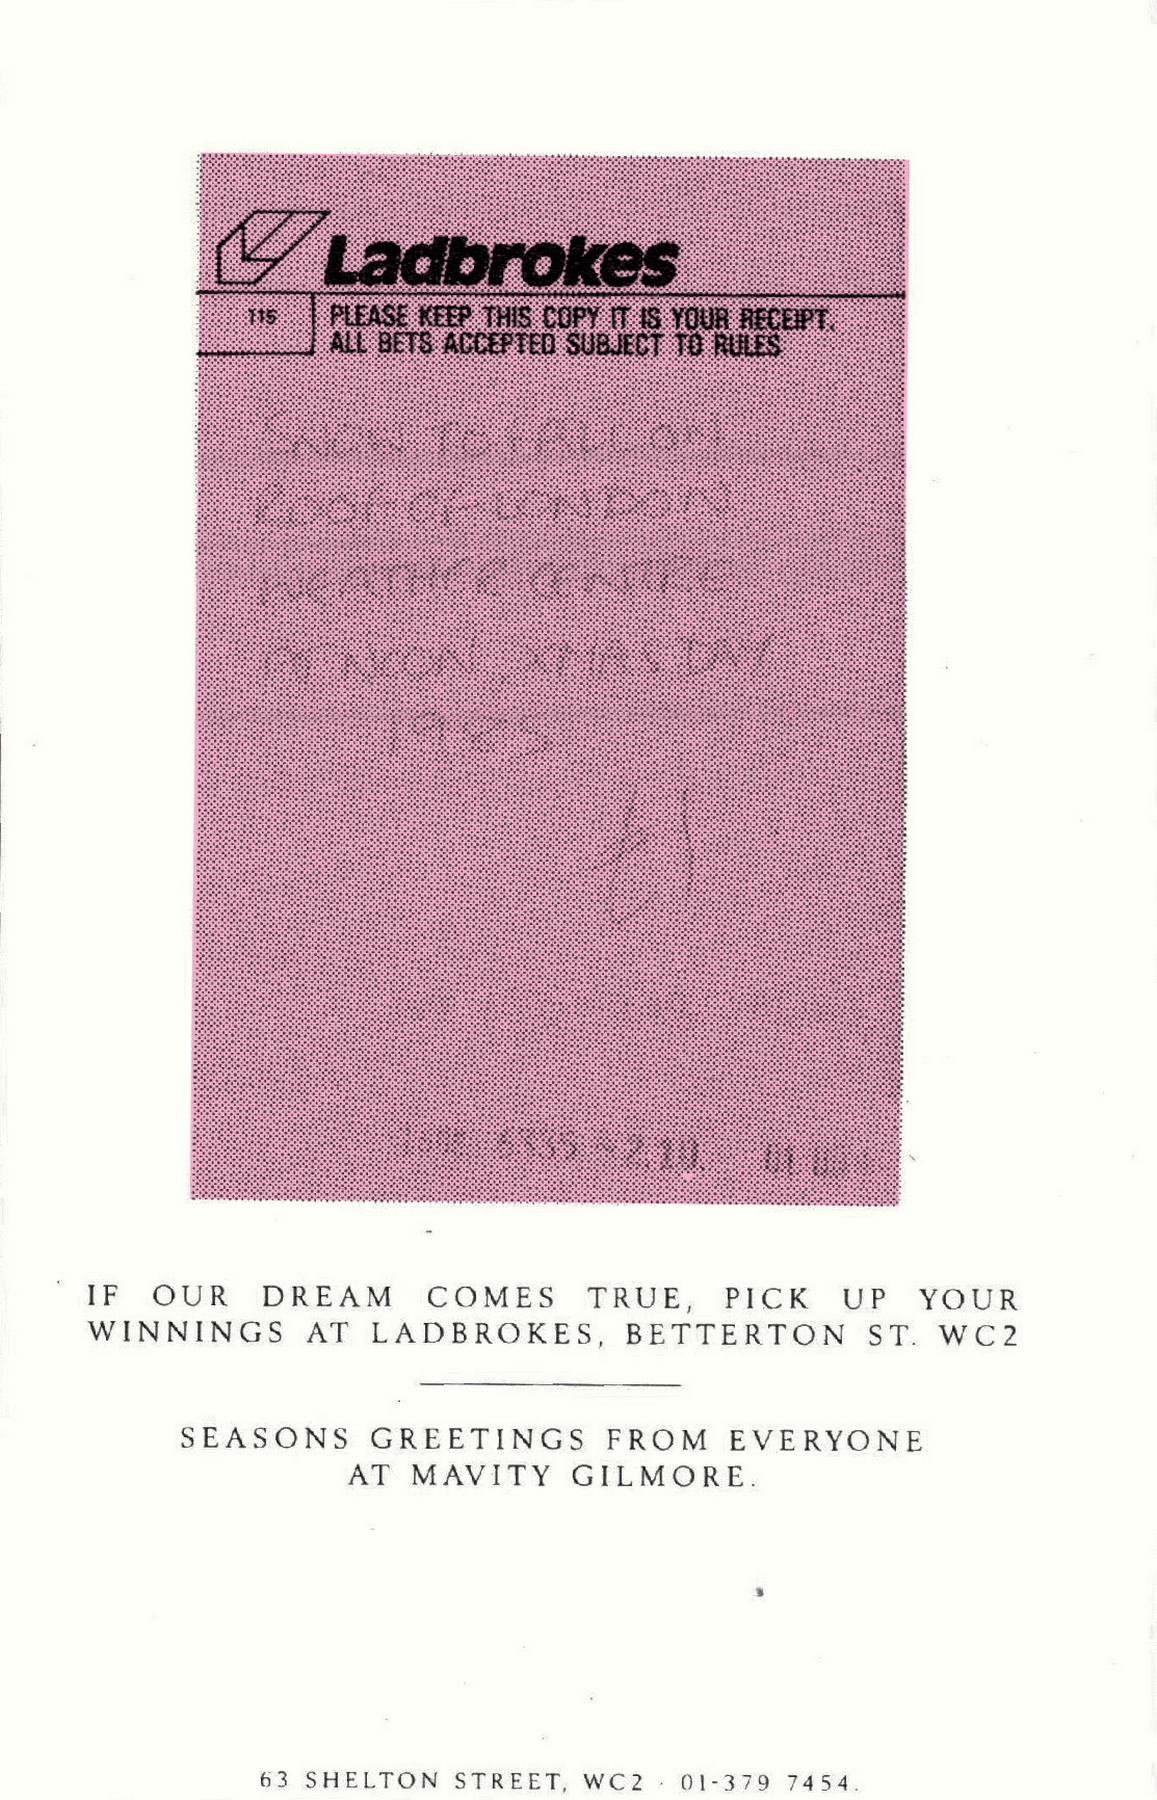 Ladbrokes
115
PLEASE KEEP THIS COPY IT IS YOUR RECEIPT.
ALL BETS ACCEPTED SUBJECT TO RULES
SNOW TO FALL ON
ROOF OF LONDON
WEATHER CENTRE
AT NOON, XMAS DAY
1985
£1
IF OUR DREAM COMES TRUE, PICK UP YOUR
WINNINGS AT LADBROKES, BETTERTON ST. WC2
SEASONS GREETINGS FROM EVERYONE
AT MAVITY GILMORE.
63 SHELTON STREET, WC2 · 01-379 7454.